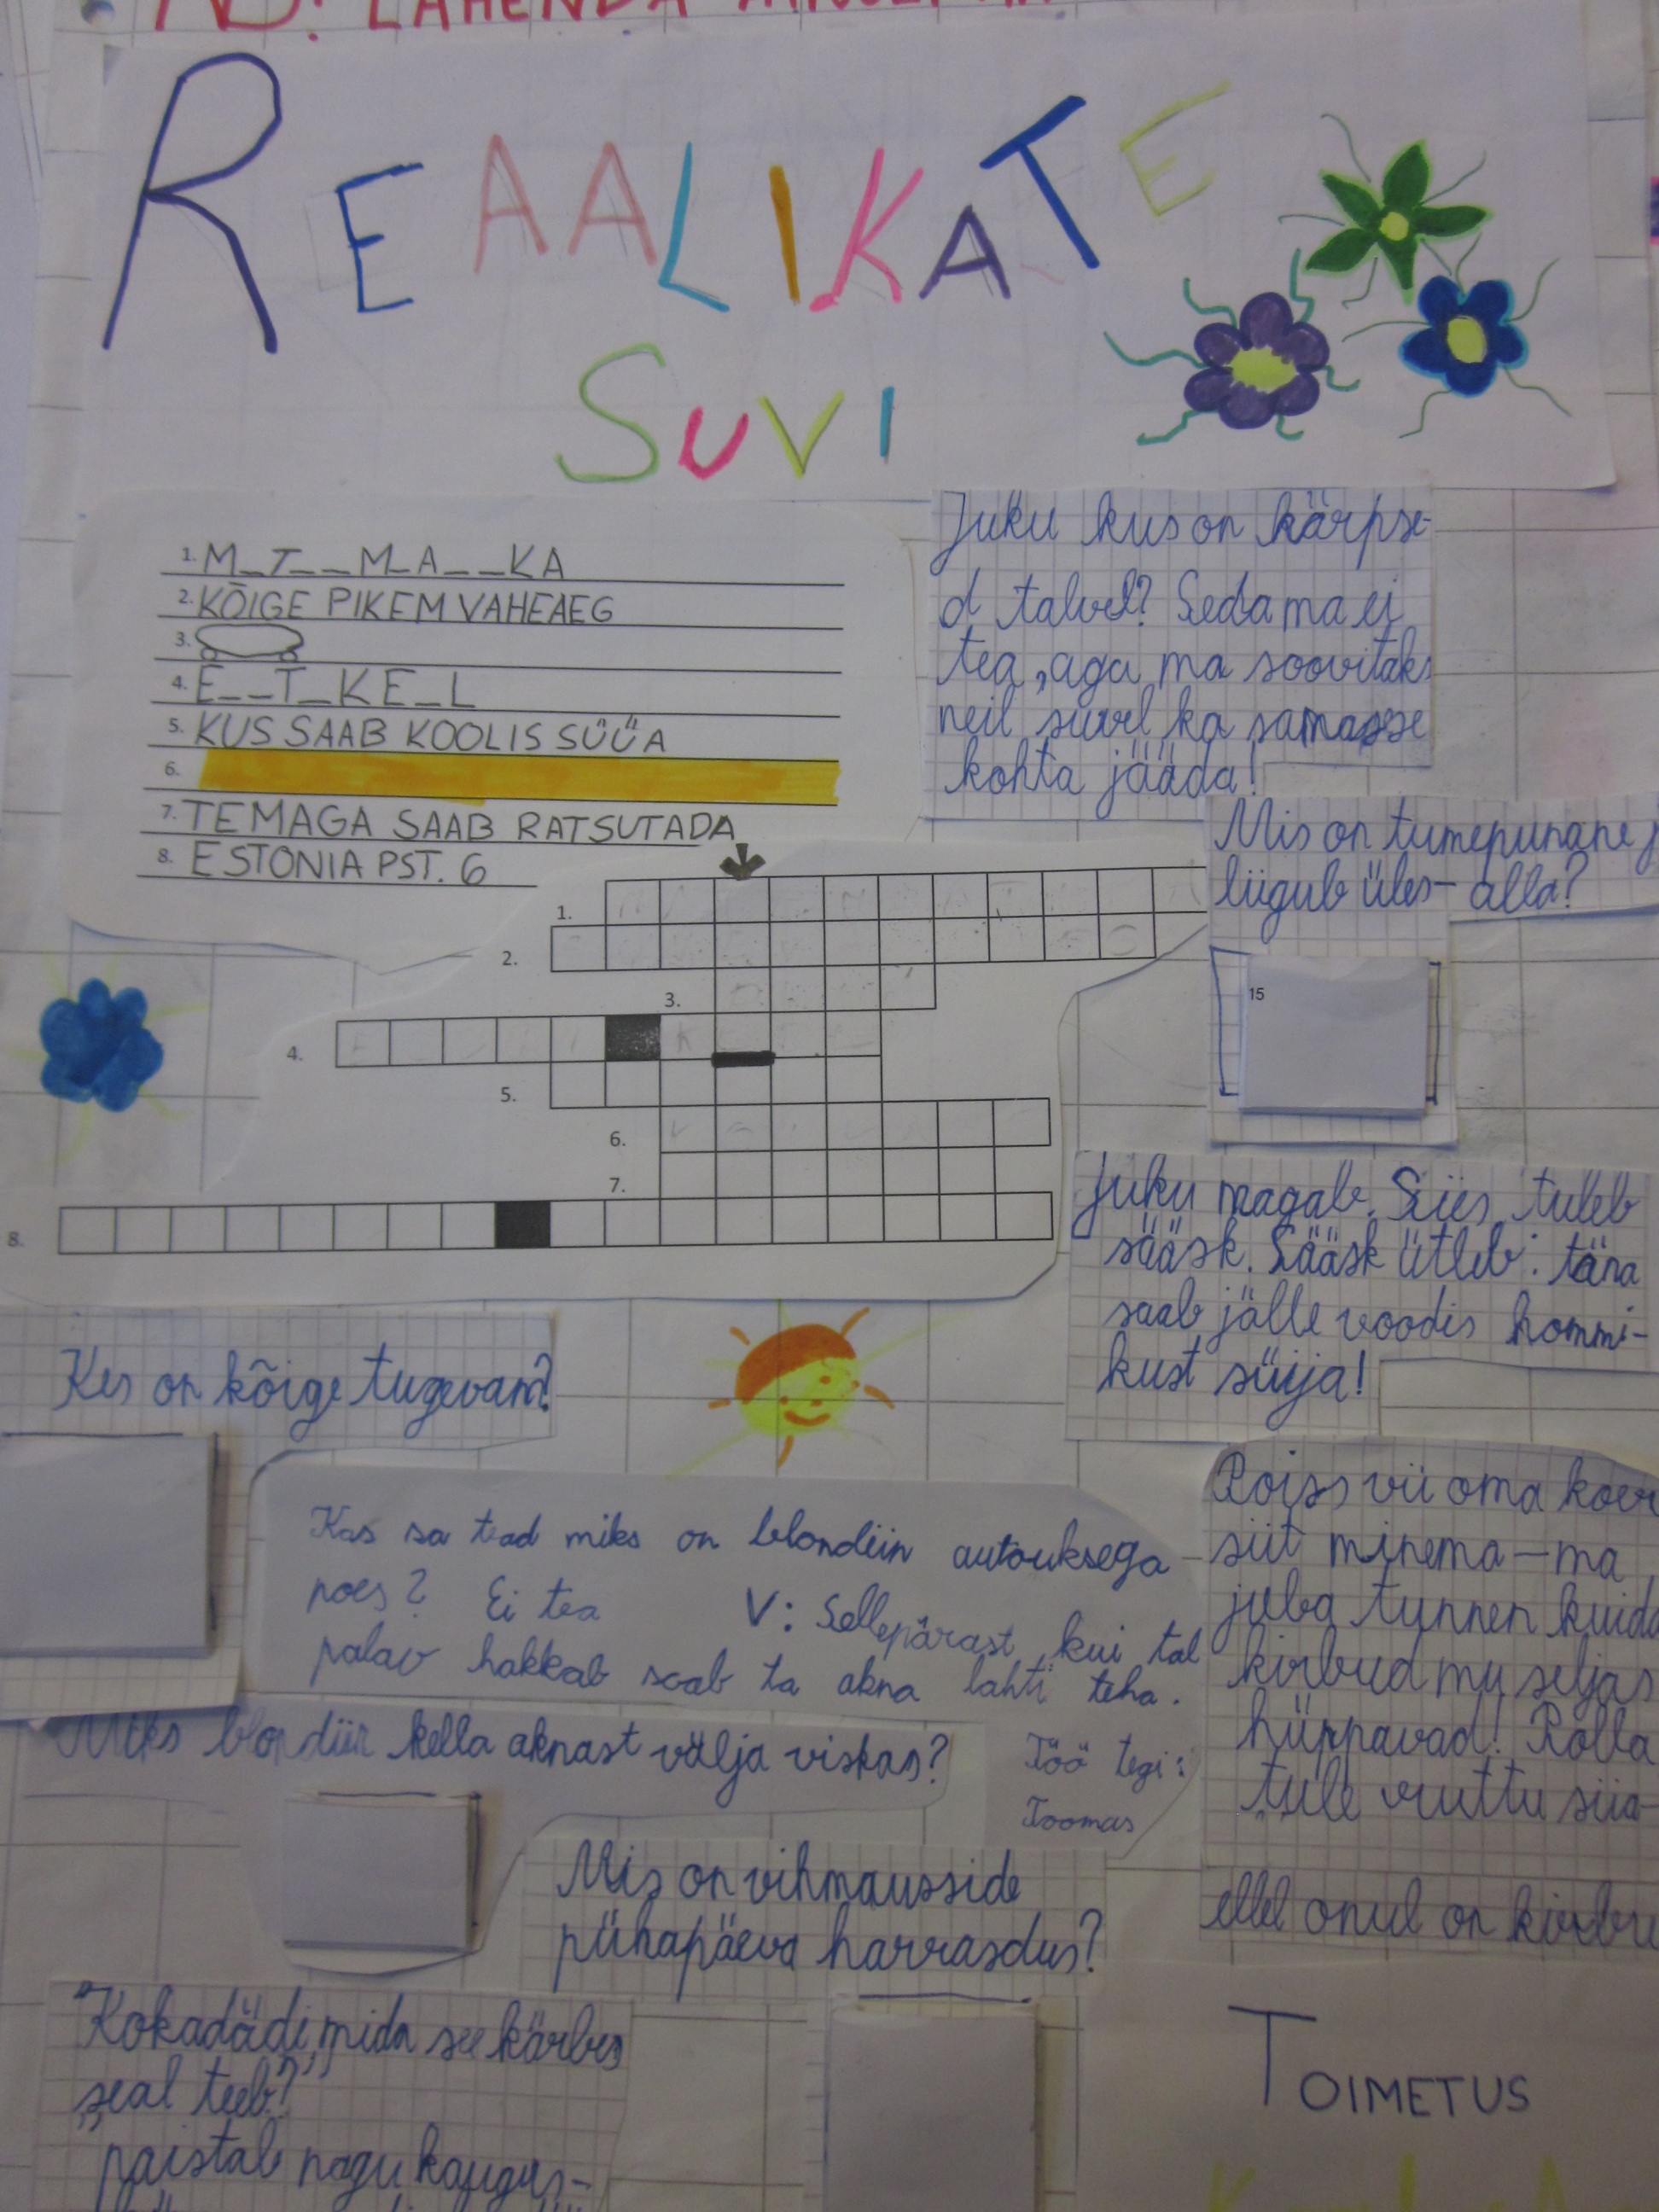 LAHENDA
REAALIKATE
SUVI
1. M_T__M_A__KA
2. KÕIGE PIKEM VAHEAEG
3.
4. E__T_KE_L
5. KUS SAAB KOOLIS SÜÜA
6.
7. TEMAGA SAAB RATSUTADA
8. ESTONIA PST. 6
Juku kus on kärpse-
d talvel? Seda ma ei
tea, aga ma soovitaks
neil suvel ka samasse
kohta jääda!
1.
2.
3.
4.
5.
6.
7.
8.
Mis on tumepunane j
liigub üles-alla?
15
Juku magab. Siis tuleb
sääsk. Sääsk ütleb: täna
saab jälle voodis hommi-
kust süüa!
Kes on kõige tugevam?
Kas sa tead miks on blondiin autouksega
poes? Ei tea V: Sellepärast kui tal
palav hakkab saab ta akna lahti teha.
Töö tegi:
Toomas
Poiss vii oma koer
siit minema - ma
juba tunnen kuida
kirbud mu seljas
hüppavad! Polla
tule ruttu siia-
ellel onul on kirbu
Miks blondiin kella aknast välja viskas?
Mis on vihmausside
pühapäeva harrasdus?
"Kokadädi, mida see kärbes
seal teeb?"
"paistab nagu kaugus-
TOIMETUS